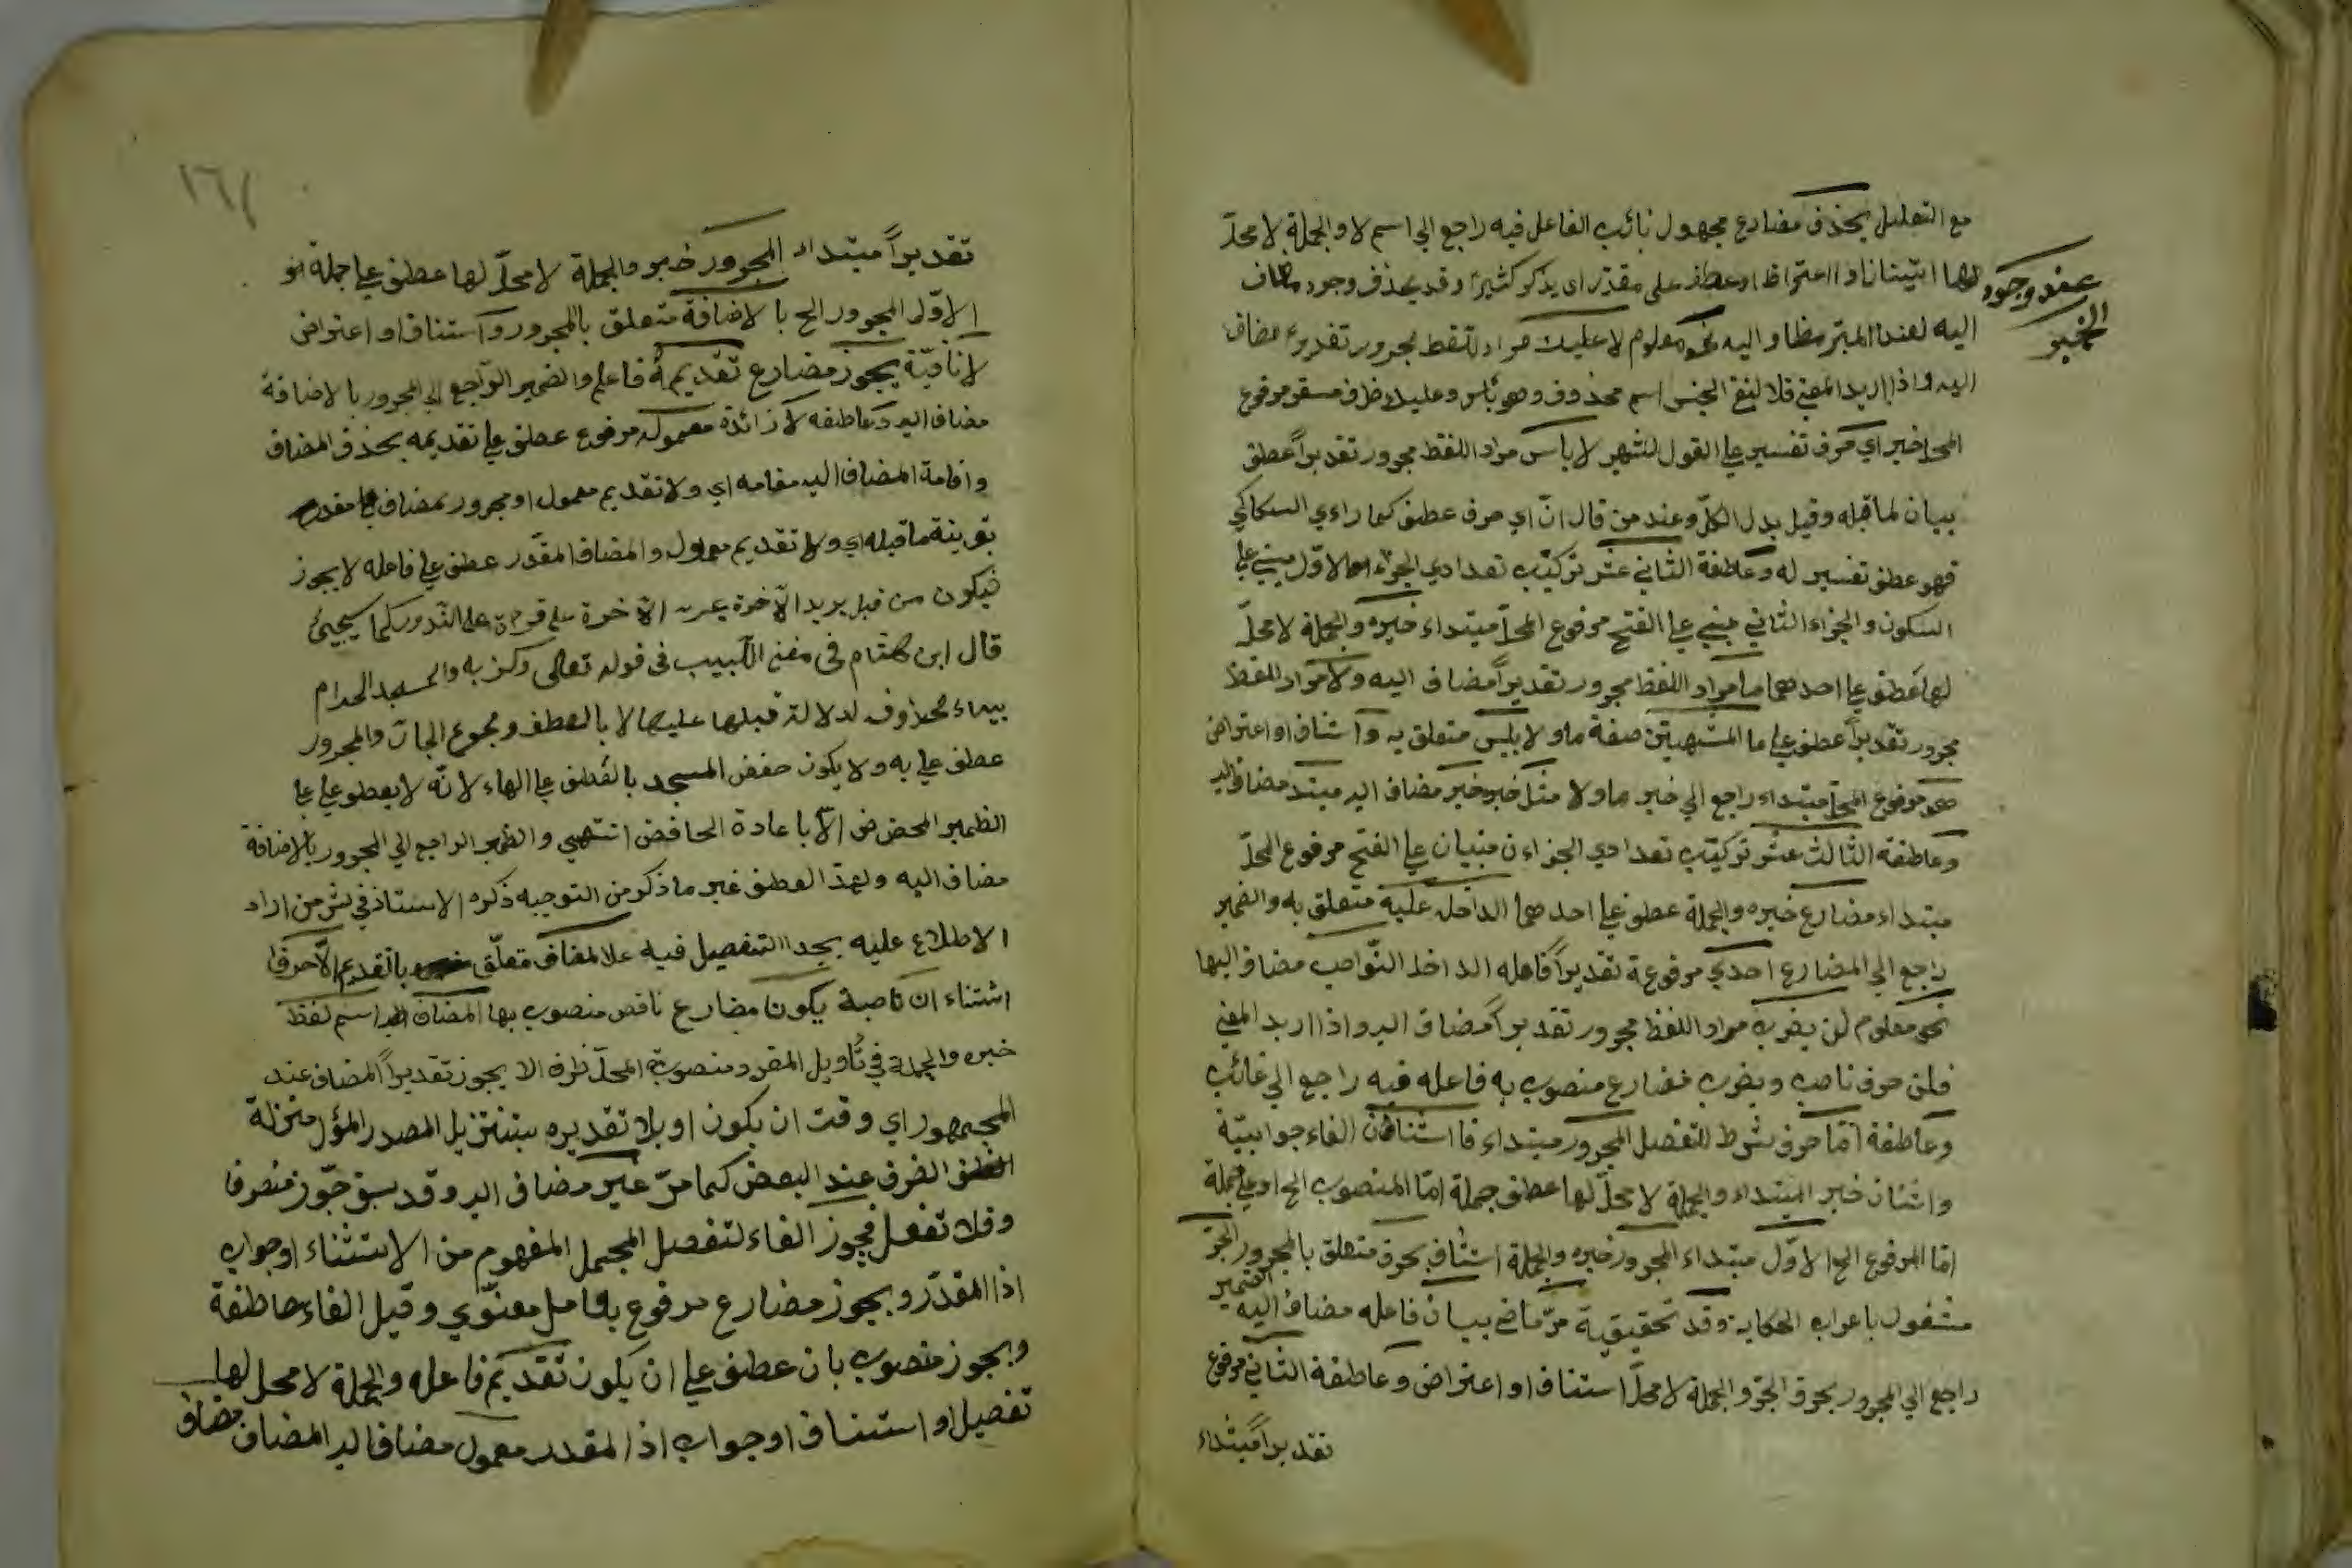 مع التعليل يحذف مضارع مجهول نائب الفاعل فيه راجع الي اسم لا والجملة لا محلّ
لها او اعتراض او عطف على مقدّر اى يذكر كثيرًا وقد يحذف وجود مضاف
عند وجود
الخبر
اليه لعند مضاف اليه نحو معلوم لا عليك مراد لفظ مجرور تقديرا مضاف
اليه واذا اريد المعني فلا لنفي الجنس اسم محذوف وهو بأس وعليك ظرف مستقر مرفوع
المحل خبر اي حرف تفسير علي القول الشهير لا بأس مراد اللفظ مجرور تقديراً عطف
بيان لما قبله وقيل بدل الكلّ وعند من قال انّ اي حرف عطف كما رأي السكاكي
فهو عطف تفسير له وعاطفة الثاني عشر تركيب تعدادي الجزء الاوّل مبني علي
السكون والجزاء الثاني مبني علي الفتح مرفوع المحلّ مبتداء خبره والجملة لا محلّ
لها عطف علي احدهما ما مراد اللفظ مجرور تقديراً مضاف اليه ولا مراد اللفظ
مجرور تقديراً عطف علي ما المشبهتين صفة ما ولا بليس متعلق به واستناف او اعتراض
هو مرفوع المحل مبتداء راجع الي خبر ما ولا مثل خبره خبر مضاف اليه مبتدء مضاف اليه
وعاطفة الثالث عشر تركيب تعدادي الجزاءن مبنيان علي الفتح مرفوع المحلّ
مبتداء مضارع خبره والجملة عطف علي احدهما الداخل عليه متعلق به والضمير
راجع الي المضارع احدي مرفوعة تقديراً فاعله الداخل النّواصب مضاف اليها
نحو معلوم لن يضرب مراد اللفظ مجرور تقديراً مضاف اليه واذا اريد المعني
فلن حرف ناصب ويضرب مضارع منصوب به فاعله فيه راجع الي غائب
وعاطفة امّا حرف شرط للتفصيل المجرور مبتداء فا استنافان الفاء جوابيّة
واشنان خبر المبتداء والجملة لا محلّ لها عطف جملة امّا المنصوب الخ او علي جملة
امّا المرفوع الخ الاوّل مبتداء المجرور خبره والجملة استناف بحرف متعلق بالمجرور الجرّ
مشغول باعراب الحكاية وقد تحقيقية مرّ ماضي بيان فاعله مضاف اليه الضمير
راجع الي المجرور بحرف الجرّ والجملة لا محلّ استناف او اعتراض وعاطفة الثاني مرفوع
تقديراً مبتداء
١٦١
تقديراً مبتداء المجرور خبر والجملة لا محلّ لها عطف علي جملة
الاوّل المجرور الخ بالاضافة متعلق بالمجرور واستناف او اعتراض
لا نافيّة يجوز مضارع تقديمه فاعله والضمير الرّاجع الي المجرور بالاضافة
مضاف اليه وعاطفه لا زائدة معموله مرفوع عطف علي تقديمه بحذف المضاف
واقامة المضاف اليه مقامه اي ولا تقديم معمول او مجرور بمضاف مقدر
بقرينة ما قبله اي ولا تقديم معمول والمضاف المقدّر عطف علي فاعله لا يجوز
فيكون من قبل يريد الآخرة بجر الآخرة علي قراءة علي النّدور كما سيجيئ
قال ابن هشام في مغني اللّبيب في قوله تعالى وكفر به والمسجد الحرام
بباء محذوف لدلالة قبلها عليها لا بالعطف ومجموع الجارّ والمجرور
عطف علي به ولا يكون خفض المسجد بالعطف علي الهاء لانّه لا يعطف علي
الضمير المخفوض الّا باعادة الخافض انتهي والضمير الراجع الي المجرور بالاضافة
مضاف اليه ولهذ العطف غير ما ذكر من التوجيه ذكره الاستاذ في من اراد
الاطلاع عليه يجد التفصيل فيه علي المضاف متعلّق بالتقديم الّا حرف
استثناء ان ناصبة يكون مضارع ناقص منصوب بها المضاف اسم لفظ
خبره والجملة في تأويل المفرد منصوبة المحلّ ظرف الا يجوز تقديراً المضاف عند
الجمهور اي وقت ان يكون او بلا تقديره بتنزيل المصدر المؤل منزلة
الظرف عند البعض كما مرّ غير مضاف اليه وقد سبق جوّز منصرفا
وفلا تغفل فيجوز الفاء لتفصيل المجمل المفهوم من الاستثناء او جواب
اذا المقدّر ويجوز مضارع مرفوع بعامل معنوّي وقيل الفاء عاطفة
ويجوز منصوب بان عطف علي ان يكون تقديم فاعله والجملة لا محل لها
تفصيل او استناف او جواب اذا المقدر معمول مضاف اليه المضاف مضاف